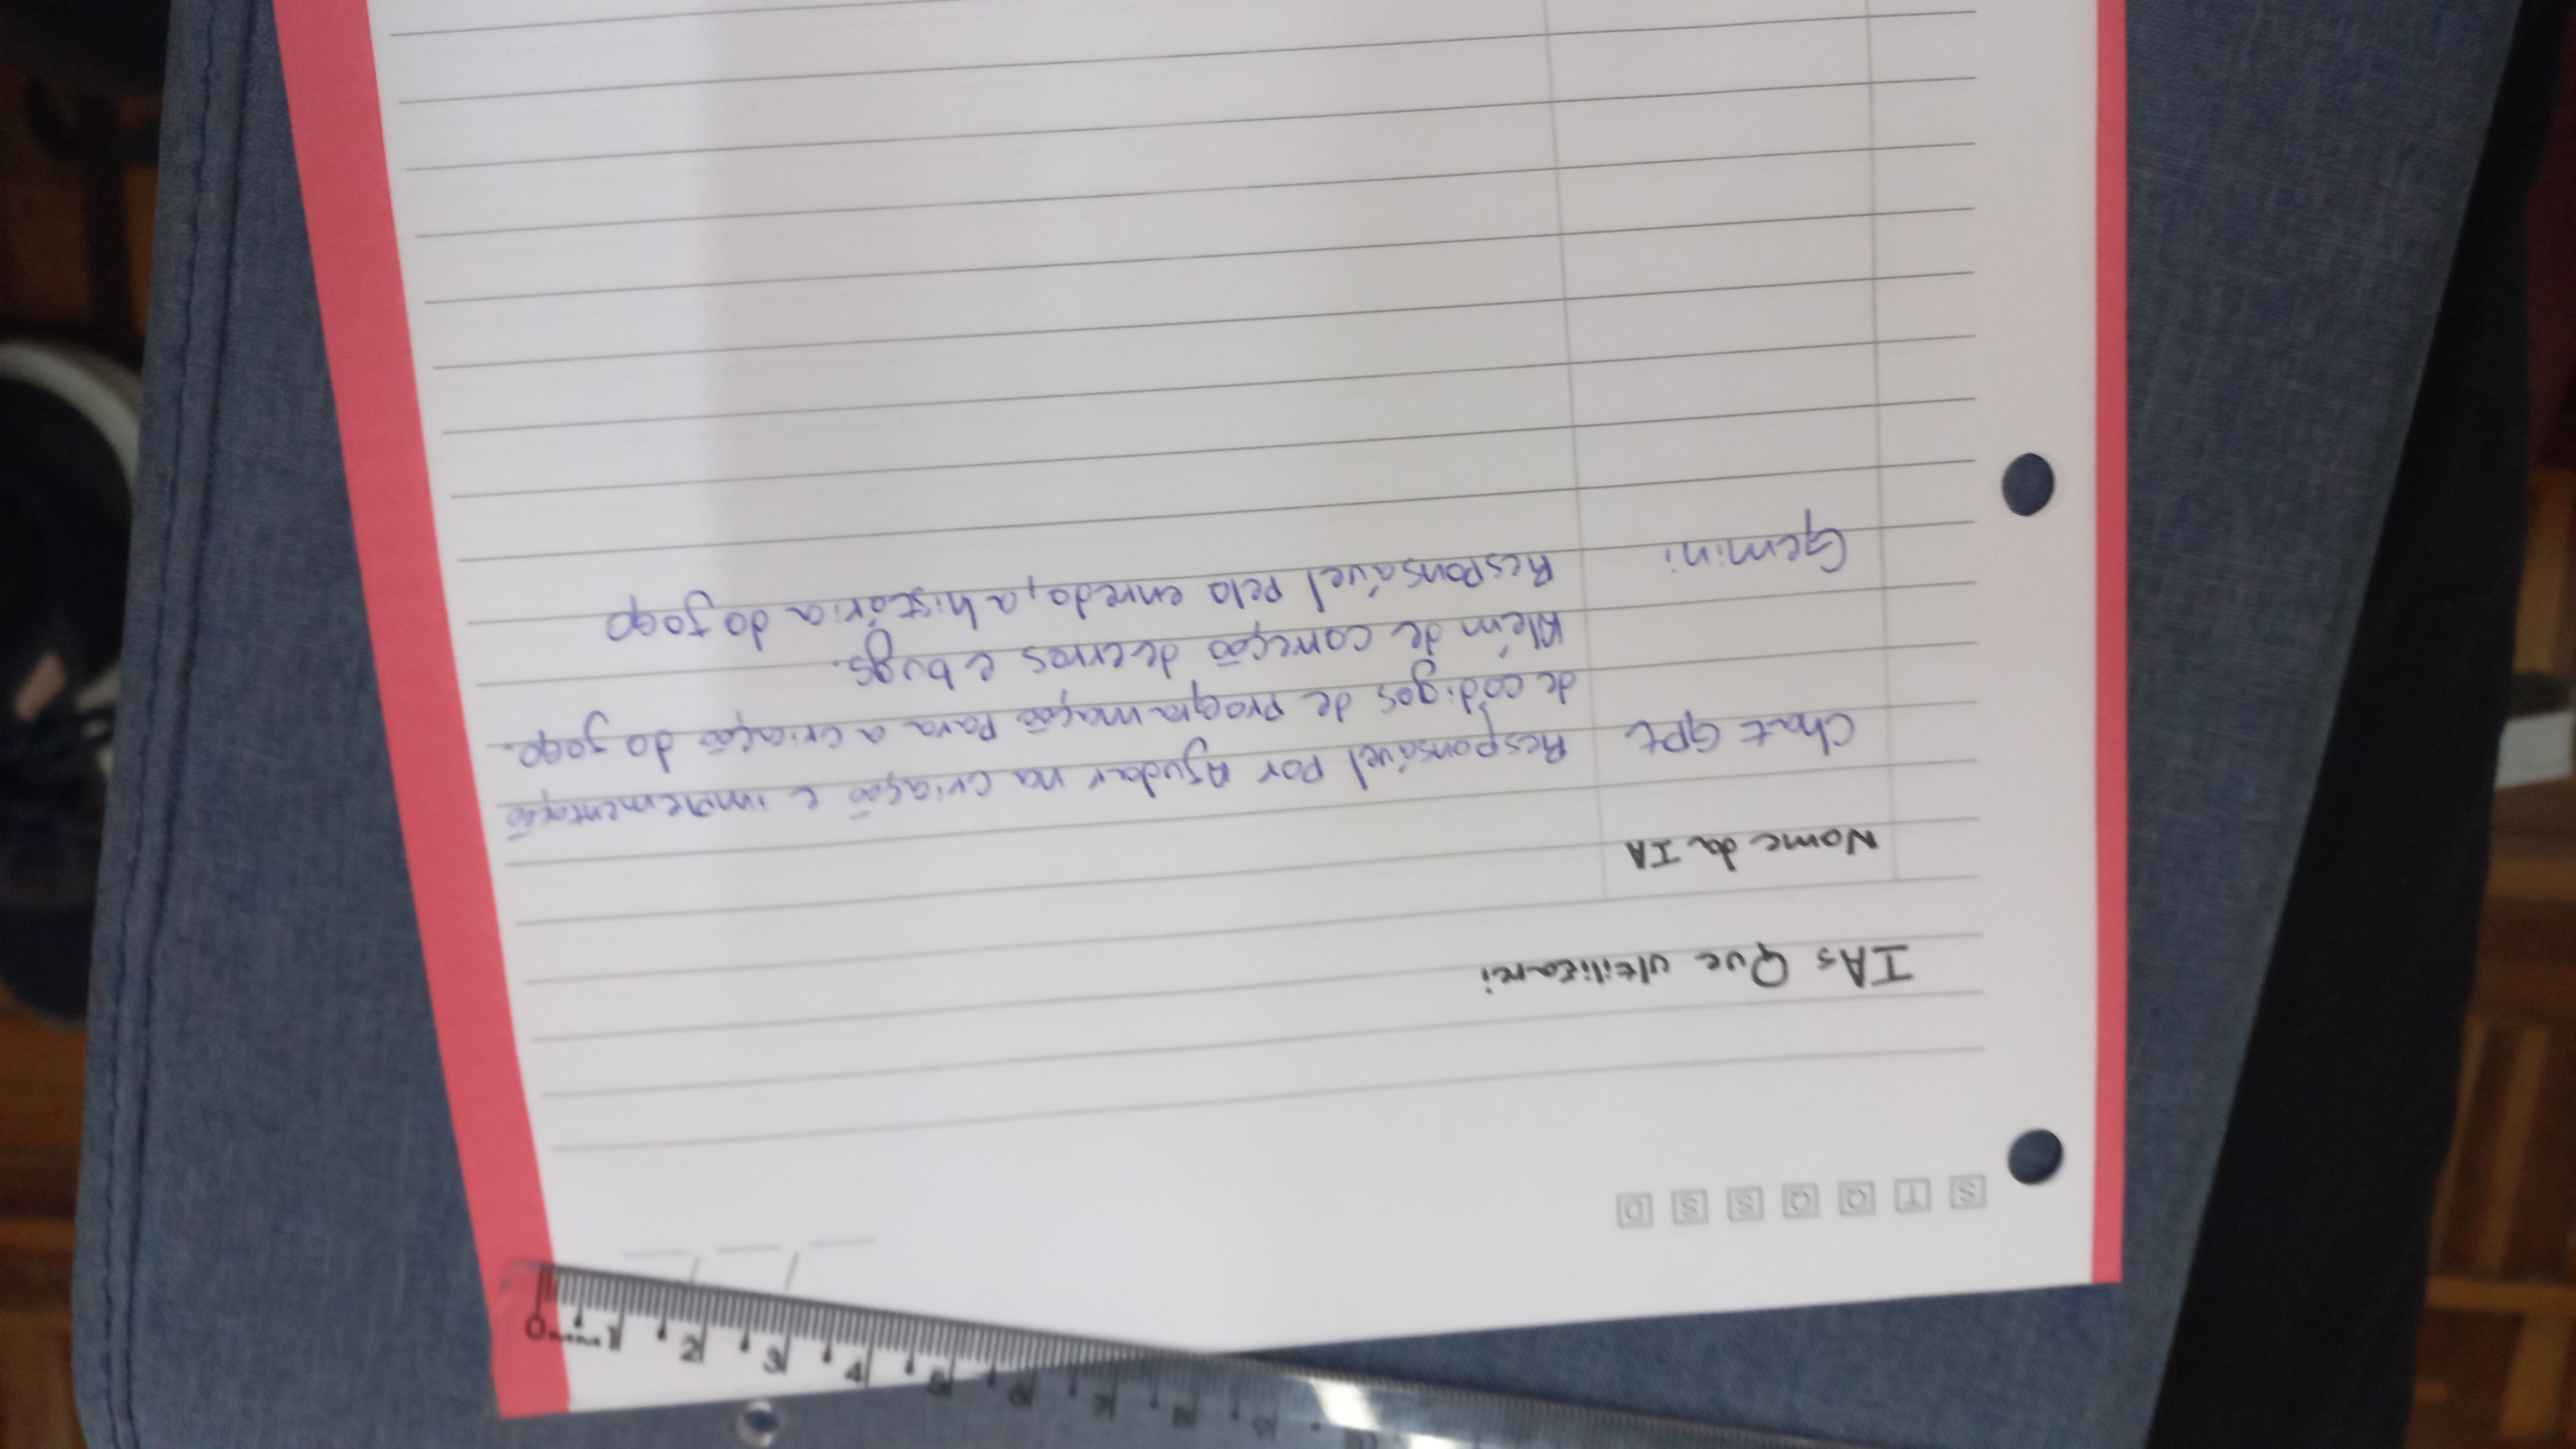 S T Q Q S S D
IAs Que ultilizarei
Nome da IA
Chat GPt Responsável Por AJudar na criação e imprementação
de códigos de programação Para a criação do jogo.
Além de correção de erros e bugs.
Gemini Responsável pelo enredo, a história do jogo
0 1 2 3 4